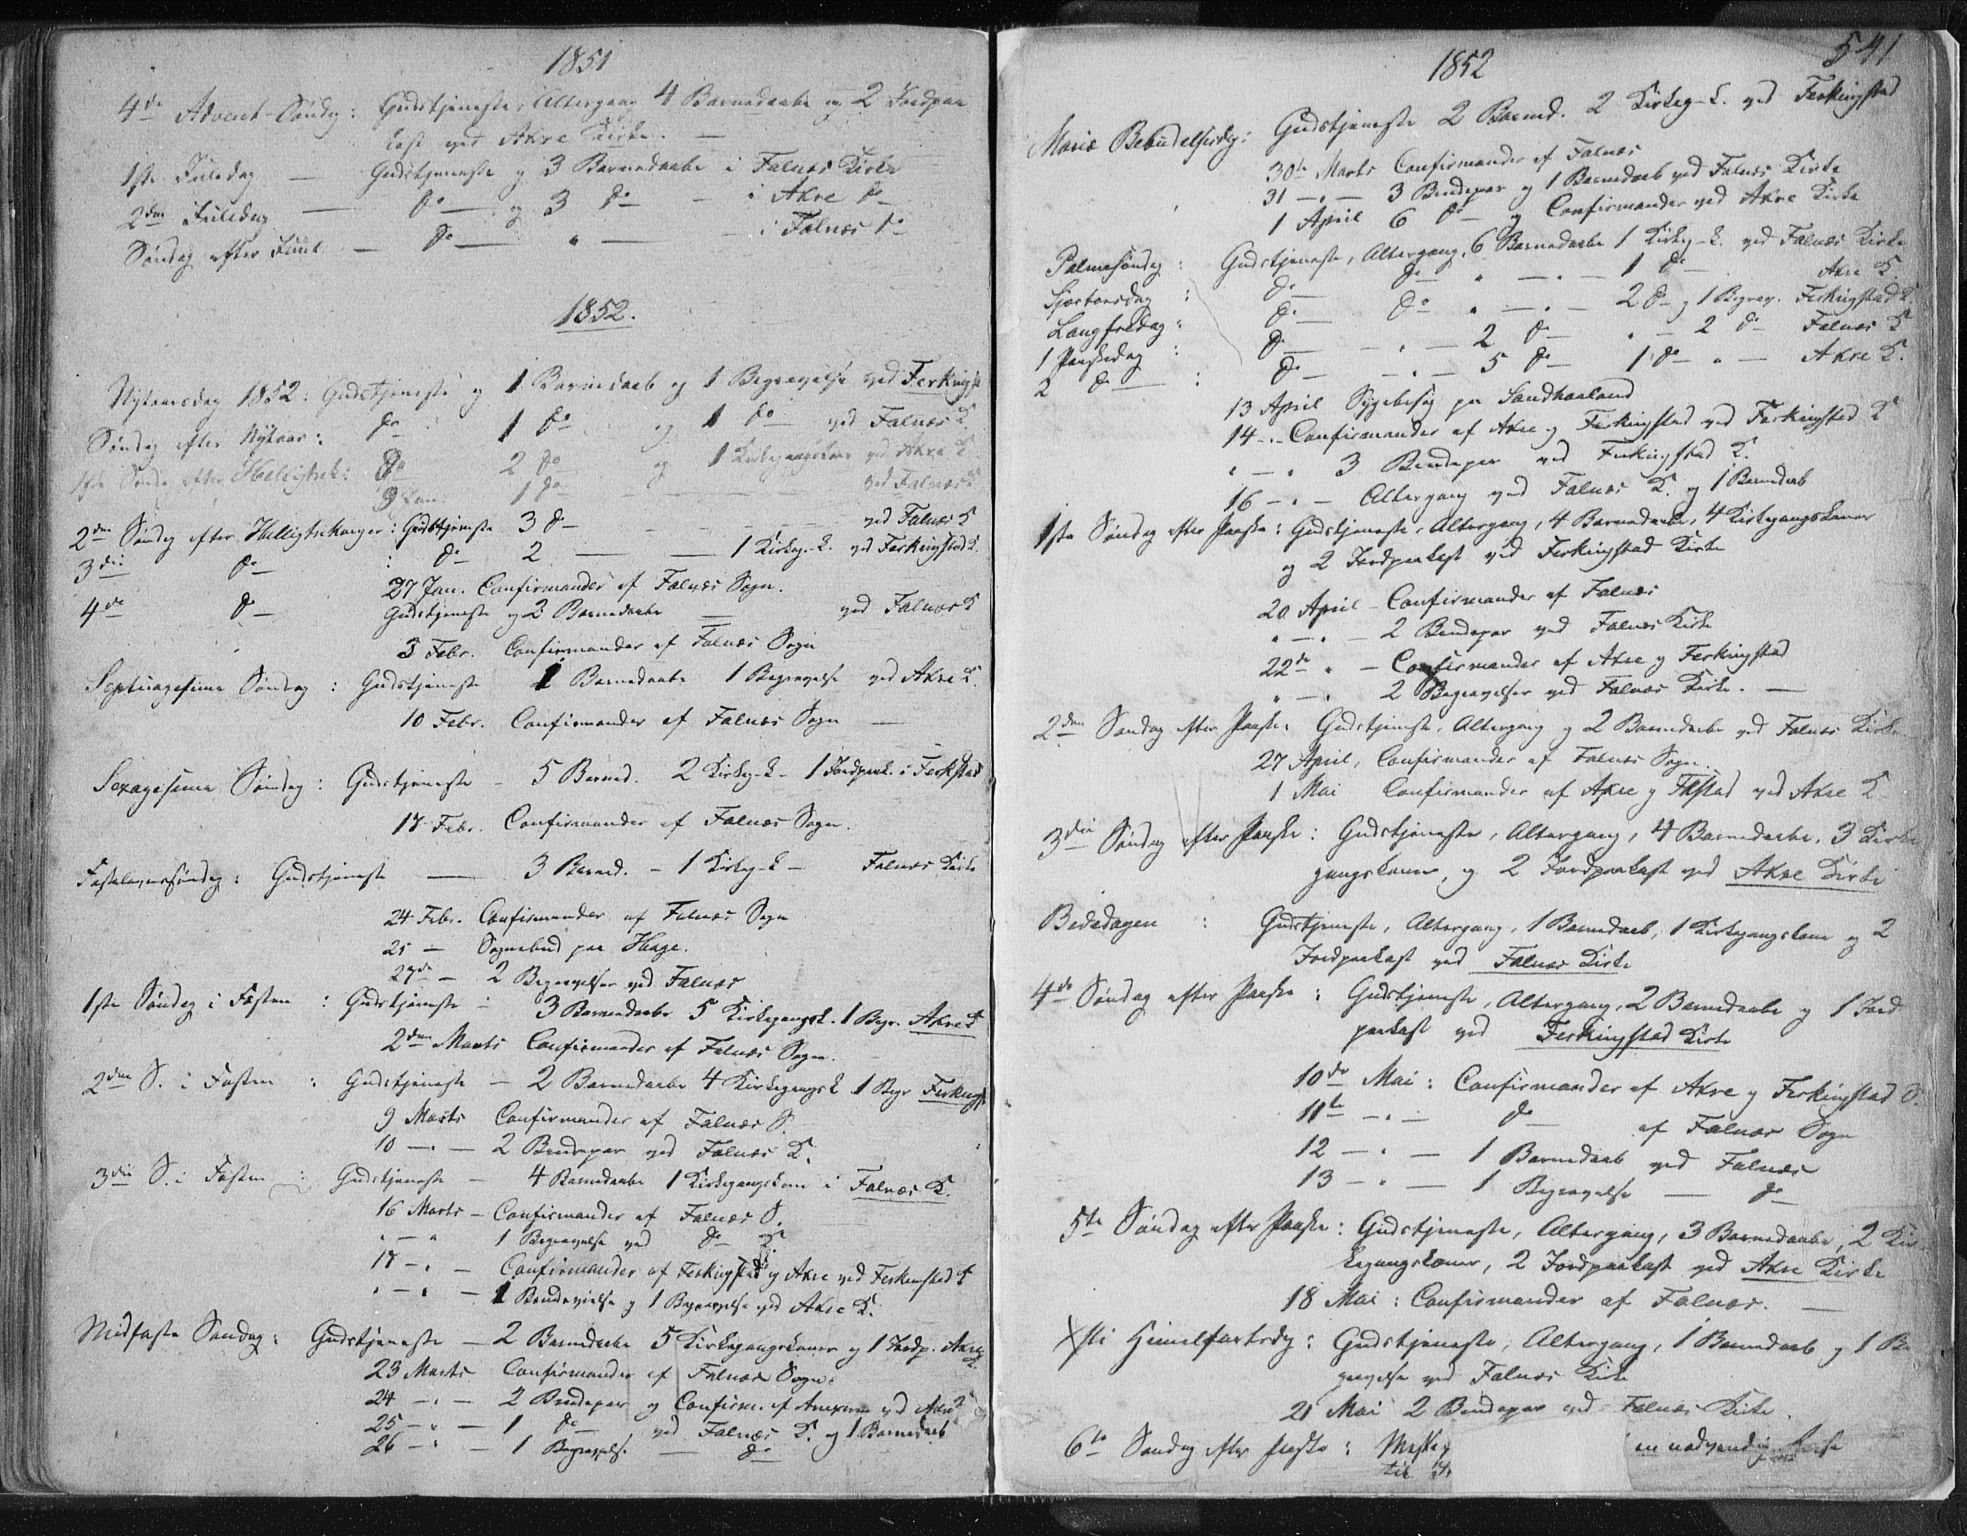 1851
4de Advent-Søndag: Gudstjeneste, Altergang 4 Barnedaabe og 2 Jordpaa
kast ved Akre Kirke. —
1ste Juledag — Gudstjeneste og 3 Barnedaabe i Falnæs Kirke
2den Juledag — do — og 3 do — - i Akre do
Søndag efter Juul. — do — " — i Falnæs do
1852.
Nytaarsdag 1852: Gudstjeneste og 1 Barnedaab og 1 Begravelse ved Ferkingst
Søndag efter Nytaar: do 1 do og 1 do ved Falnæs K.
1ste Sønda efter Helligtrek: do 2 do og 1 Kirkegangskone ved Akre K
9 Jan. 1 do — ved Falnæs K
2den Søndag efter Helligtrekonger: Gudstjeneste 3 do — ved Falnæs K
3die do : do 2 — — 1 Kirkeg.-k. ved Ferkingstad K.
27 Jan. Confirmander af Falnæs Sogn.
4de do Gudstjeneste og 2 Barnedaabe — ved Falnæs K
3 Febr. Confirmander af Falnæs Sogn
Septuagesima Søndag: Gudstjeneste 1 Barnedaabe 1 Begravelse ved Akre K.
10 Febr. Confirmander af Falnæs Sogn —
Sexagesima Søndag: Gudstjeneste - 5 Barned. 2 Kirkeg-k - 1 Jordpaak. i Ferkstad
17 Febr. Confirmander af Falnæs Sogn.
Fastelavnssøndag: Gudstjeneste — 3 Barned. - 1 Kirkeg-k - Falnæs Kirke
24 Febr. Confirmander af Falnæs Sogn
25 — Sognebud paa Hauge.
27de — 2 Begravelser ved Falnæs
1ste Søndag i Fasten: Gudstjeneste - 3 Barnedaabe 5 Kirkegangsk. 1 Begr. Akre K
2den Marts Confirmander af Falnæs Sogn.
2den S. i Fasten : Gudstjeneste — 2 Barnedaabe 4 Kirkegangsk 1 Begr Ferkingst
9 Marts Confirmander af Falnæs S.
10 — " — 2 Brudepar ved Falnæs K.
3die S. i Fasten : Gudstjeneste — 4 Barnedaabe 1 Kirkegangskone i Falnæs K.
16 Marts - Confirmander af Falnæs S.
" — " 1 Begravelse ved do K.
17 — " — Confirmander af Ferkingstad og Akre ved Ferkenstad K
" — " — 1 Brudevielse og 1 Begravelse ved Akre K.
Midfaste Søndag: Gudstjeneste — 2 Barnedaabe 5 Kirkegangskoner og 1 Jordp. Akre
23 Marts Confirmander af Falnæs Sogn.
24 — " — 2 Brudepar og Confirm. af Annexerne ved Akre K
25 — " — 1 do ved Falnæs K. og 1 Barnedaab
26 — " — 1 Begravelse — do
541
1852
Mariæ Bebudelsesdag: Gudstjeneste 2 Barned. 2 Kirkeg-k. ved Ferkingstad
30te Marts Confirmander af Falnæs
31 — " — 3 Brudepar og 1 Barnedaab ved Falnæs Kirke
1 April 6 do — og Confirmander ved Akre Kirke
Palmesøndag: Gudstjeneste, Altergang, 6 Barnedaabe 1 Kirkeg-k. ved Falnæs Kirke
Sjertorsdag : do — do " — " — 1 do — Akre K.
Langfredag: do — do " — " — 2 do og 1 Begrav. Ferkingstad K.
1 Paaskedag : do — " — 2 do " — 2 do Falnæs K
2 do : do — " — 5 do 1 do " — Akre K.
13 April Sygebesøg paa Sandhaaland
14 - " - Confirmander af Akre og Ferkingstad ved Ferkingstad K
" — " 3 Brudepar ved Ferkingstad K.
16 — " — Altergang ved Falnæs K. og 1 Barnedaab
1ste Søndag efter Paaske: Gudstjeneste, Altergang, 4 Barnedaabe, 4 Kirkegangskoner
og 2 Jordpaakast ved Ferkingstad Kirke
20 April - Confirmander af Falnæs
" — " — 2 Brudepar ved Falnæs Kirke
22de " — Confirmander af Akre og Ferkingstad
" — " 2 Begravelser ved Falnæs Kirke. —
2den Søndag efter Paaske: Gudstjeneste, Altergang og 2 Barnedaabe ved Falnæs Kirke
27 April, Confirmander af Falnæs Sogn.
1 Mai Confirmander af Akre og Fkstad ved Akre K
3die Søndag efter Paaske: Gudstjeneste, Altergang, 4 Barnedaabe, 3 Kirke
gangskoner, og 2 Jordpaakast ved Akre Kirke
Bededagen : Gudstjeneste, Altergang, 1 Barnedaab, 1 Kirkegangskone og 2
Jordpaakast ved Falnæs Kirke
4de Søndag efter Paaske: Gudstjeneste, Altergang, 2 Barnedaabe og 1 Jord
paakast ved Ferkingstad Kirke
10de Mai: Confirmander af Akre og Ferkingstad S.
11te — " — do af Falnæs Sogn
12 — " — 1 Barnedaab ved Falnæs
13 — " — 1 Begravelse — do
5te Søndag efter Paaske: Gudstjeneste, Altergang, 3 Barnedaabe, 2 Kir
kegangskoner, 2 Jordpaakast ved Akre Kirke
18 Mai: Confirmander af Falnæs. —
Xsti Himelfartsdag: Gudstjeneste, Altergang, 1 Barnedaab og 1 Be
gravelse ved Falnæs Kirke
21 Mai 2 Brudepar ved Falnæs Kirke.
6te Søndag efter Paaske: en nødvendig Reise
til